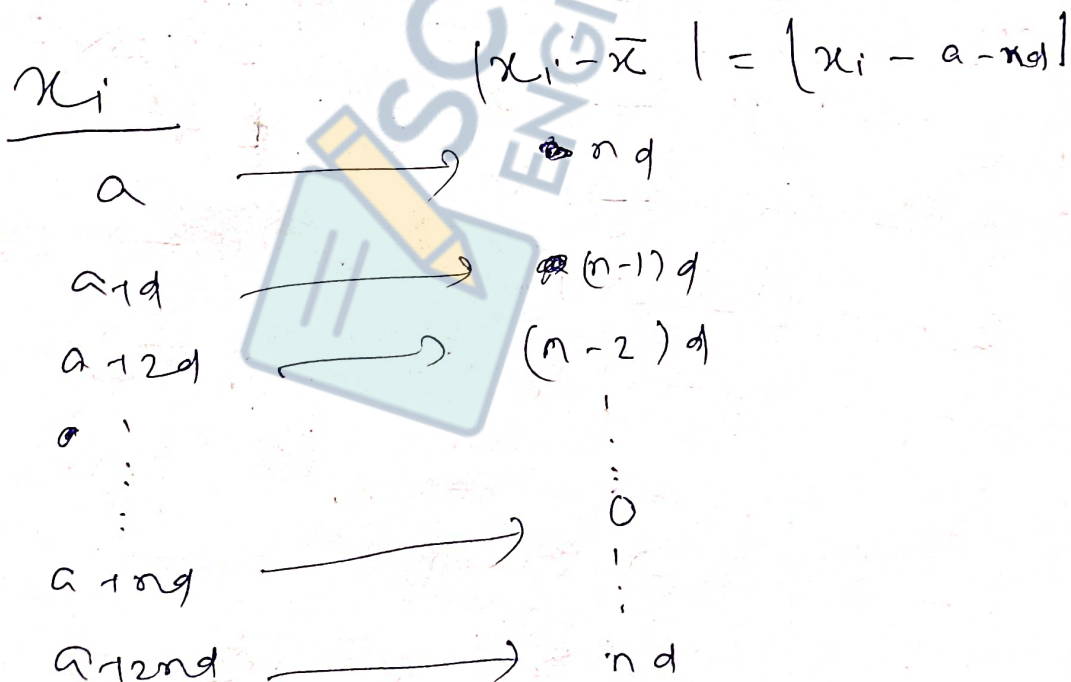 xᵢ |xᵢ - x̄| = |xᵢ - a - nd|
a → nd
a+d → (n-1)d
a+2d → (n-2)d
⋮ ⋮
0
a+nd → ⋮
a+2nd → nd
SC
ENGI